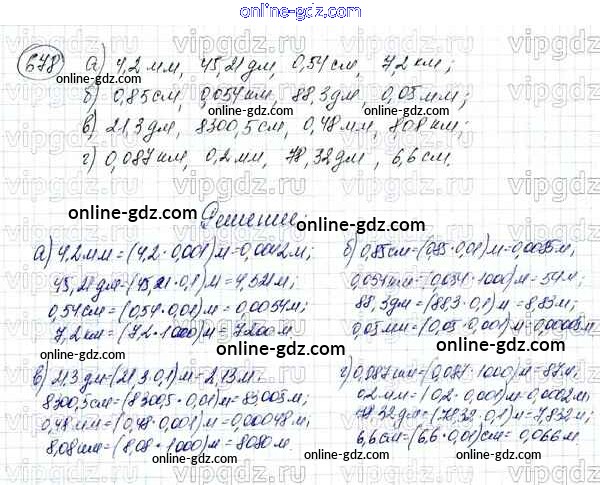 online-gdz.com
678 а) 4,2 мм, 45,21 дм, 0,54 см, 7,2 км;
б) 0,85 см, 0,054 км, 88,3 дм, 0,05 мм;
в) 21,3 дм, 8300,5 см, 0,48 мм, 8,08 км;
г) 0,087 км, 0,2 мм, 78,32 дм, 6,6 см.
Решение:
а) 4,2 мм = (4,2 · 0,001) м = 0,0042 м;
45,21 дм = (45,21 · 0,1) м = 4,521 м;
0,54 см = (0,54 · 0,01) м = 0,0054 м;
7,2 км = (7,2 · 1000) м = 7200 м
б) 0,85 см = (0,85 · 0,01) м = 0,0085 м;
0,054 км = (0,054 · 1000) м = 54 м;
88,3 дм = (88,3 · 0,1) м = 8,83 м;
0,05 мм = (0,05 · 0,001) м = 0,00005 м
в) 21,3 дм = (21,3 · 0,1) м = 2,13 м;
8300,5 см = (8300,5 · 0,01) м = 83,005 м;
0,48 мм = (0,48 · 0,001) м = 0,00048 м;
8,08 км = (8,08 · 1000) м = 8080 м.
г) 0,087 км = (0,087 · 1000) м = 87 м;
0,2 мм = (0,2 · 0,001) м = 0,0002 м;
78,32 дм = (78,32 · 0,1) м = 7,832 м;
6,6 см = (6,6 · 0,01) см = 0,066 м.